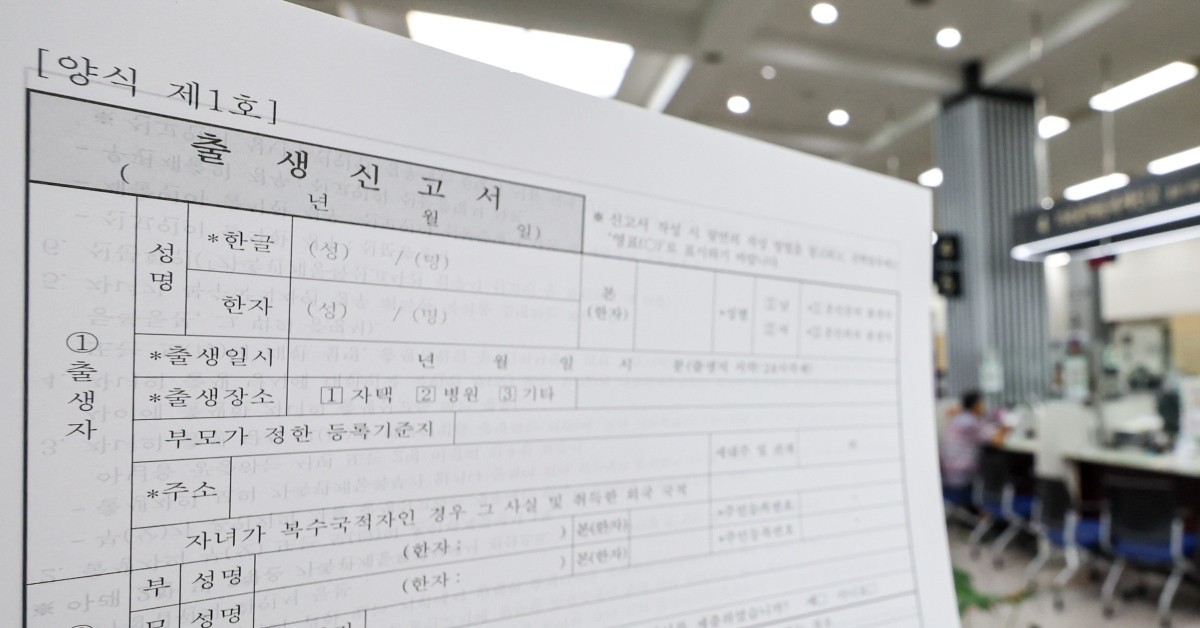 [양식 제1호]
출 생 신 고 서
( 년 월 일)
※ 신고서 작성 시 뒷면의 작성 방법을 참고하고, 선택항목에는
'영표(○)'로 표시하기 바랍니다.
① 출생자
성명
*한글 (성) / (명)
한자 (성) / (명)
본
(한자)
*성별
①남
②여
*출생일시 년 월 일 시 분(출생지 시각: 24시각제)
*출생장소 1 자택 2 병원 3 기타
부모가 정한 등록기준지
*주소
세대주 및 관계 의
자녀가 복수국적자인 경우 그 사실 및 취득한 외국 국적
부 성명 (한자 : ) 본(한자) *주민등록번호 -
모 성명 (한자 : ) 본(한자) *주민등록번호 -